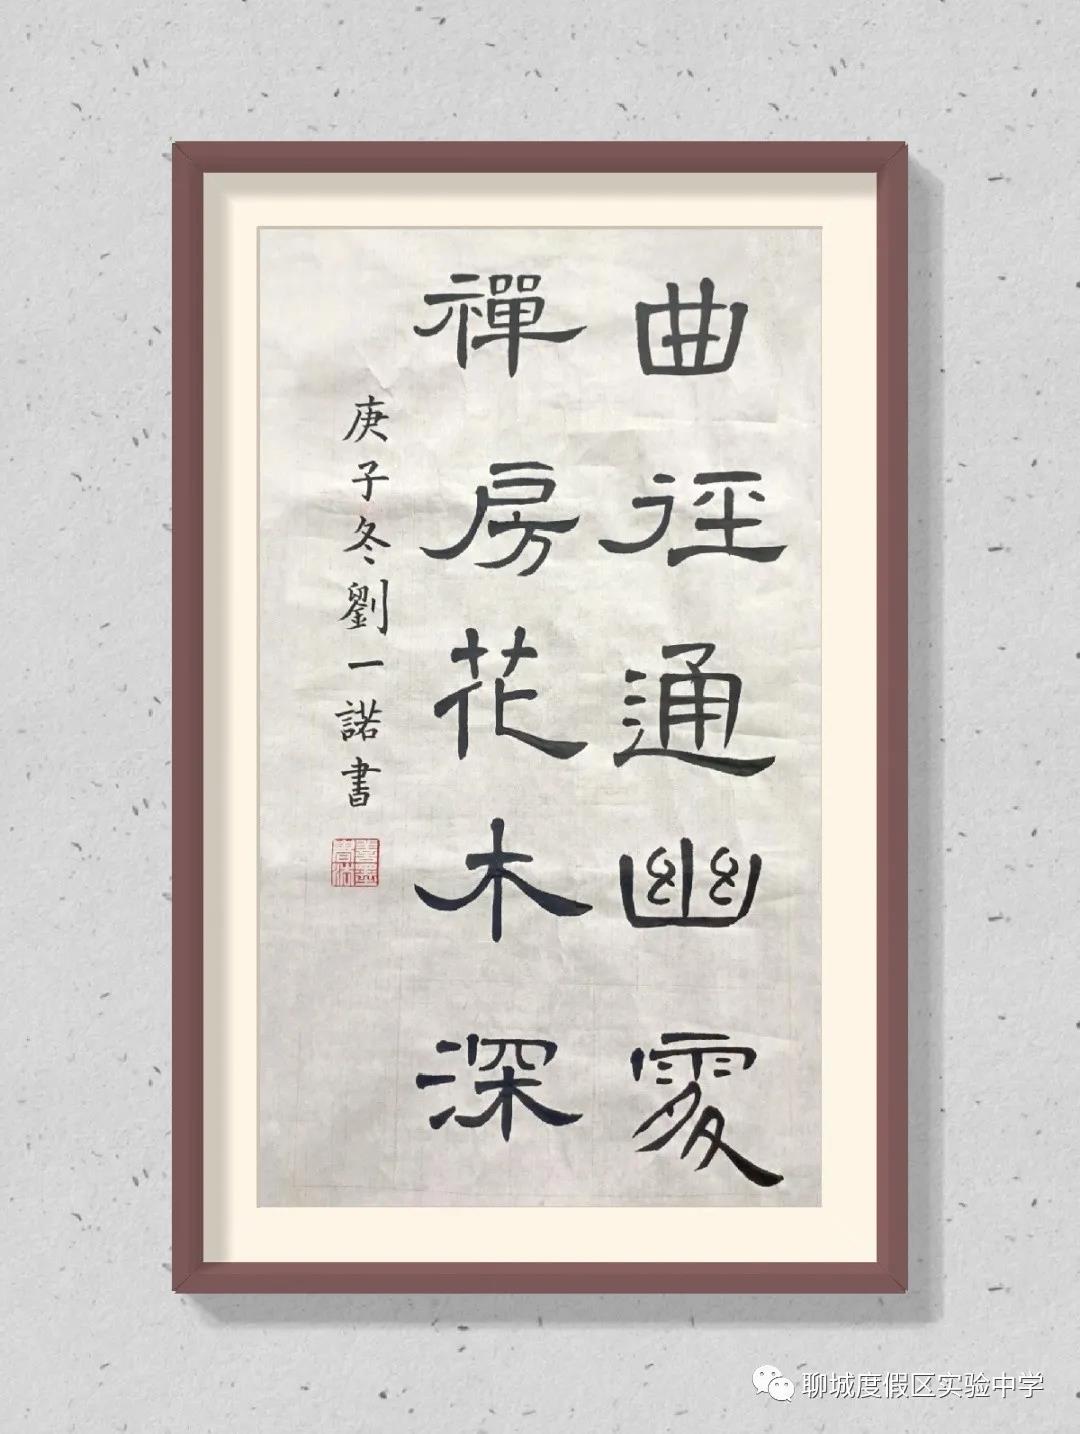 曲径通幽處
禪房花木深
庚子冬劉一諾書
聊城度假区实验中学